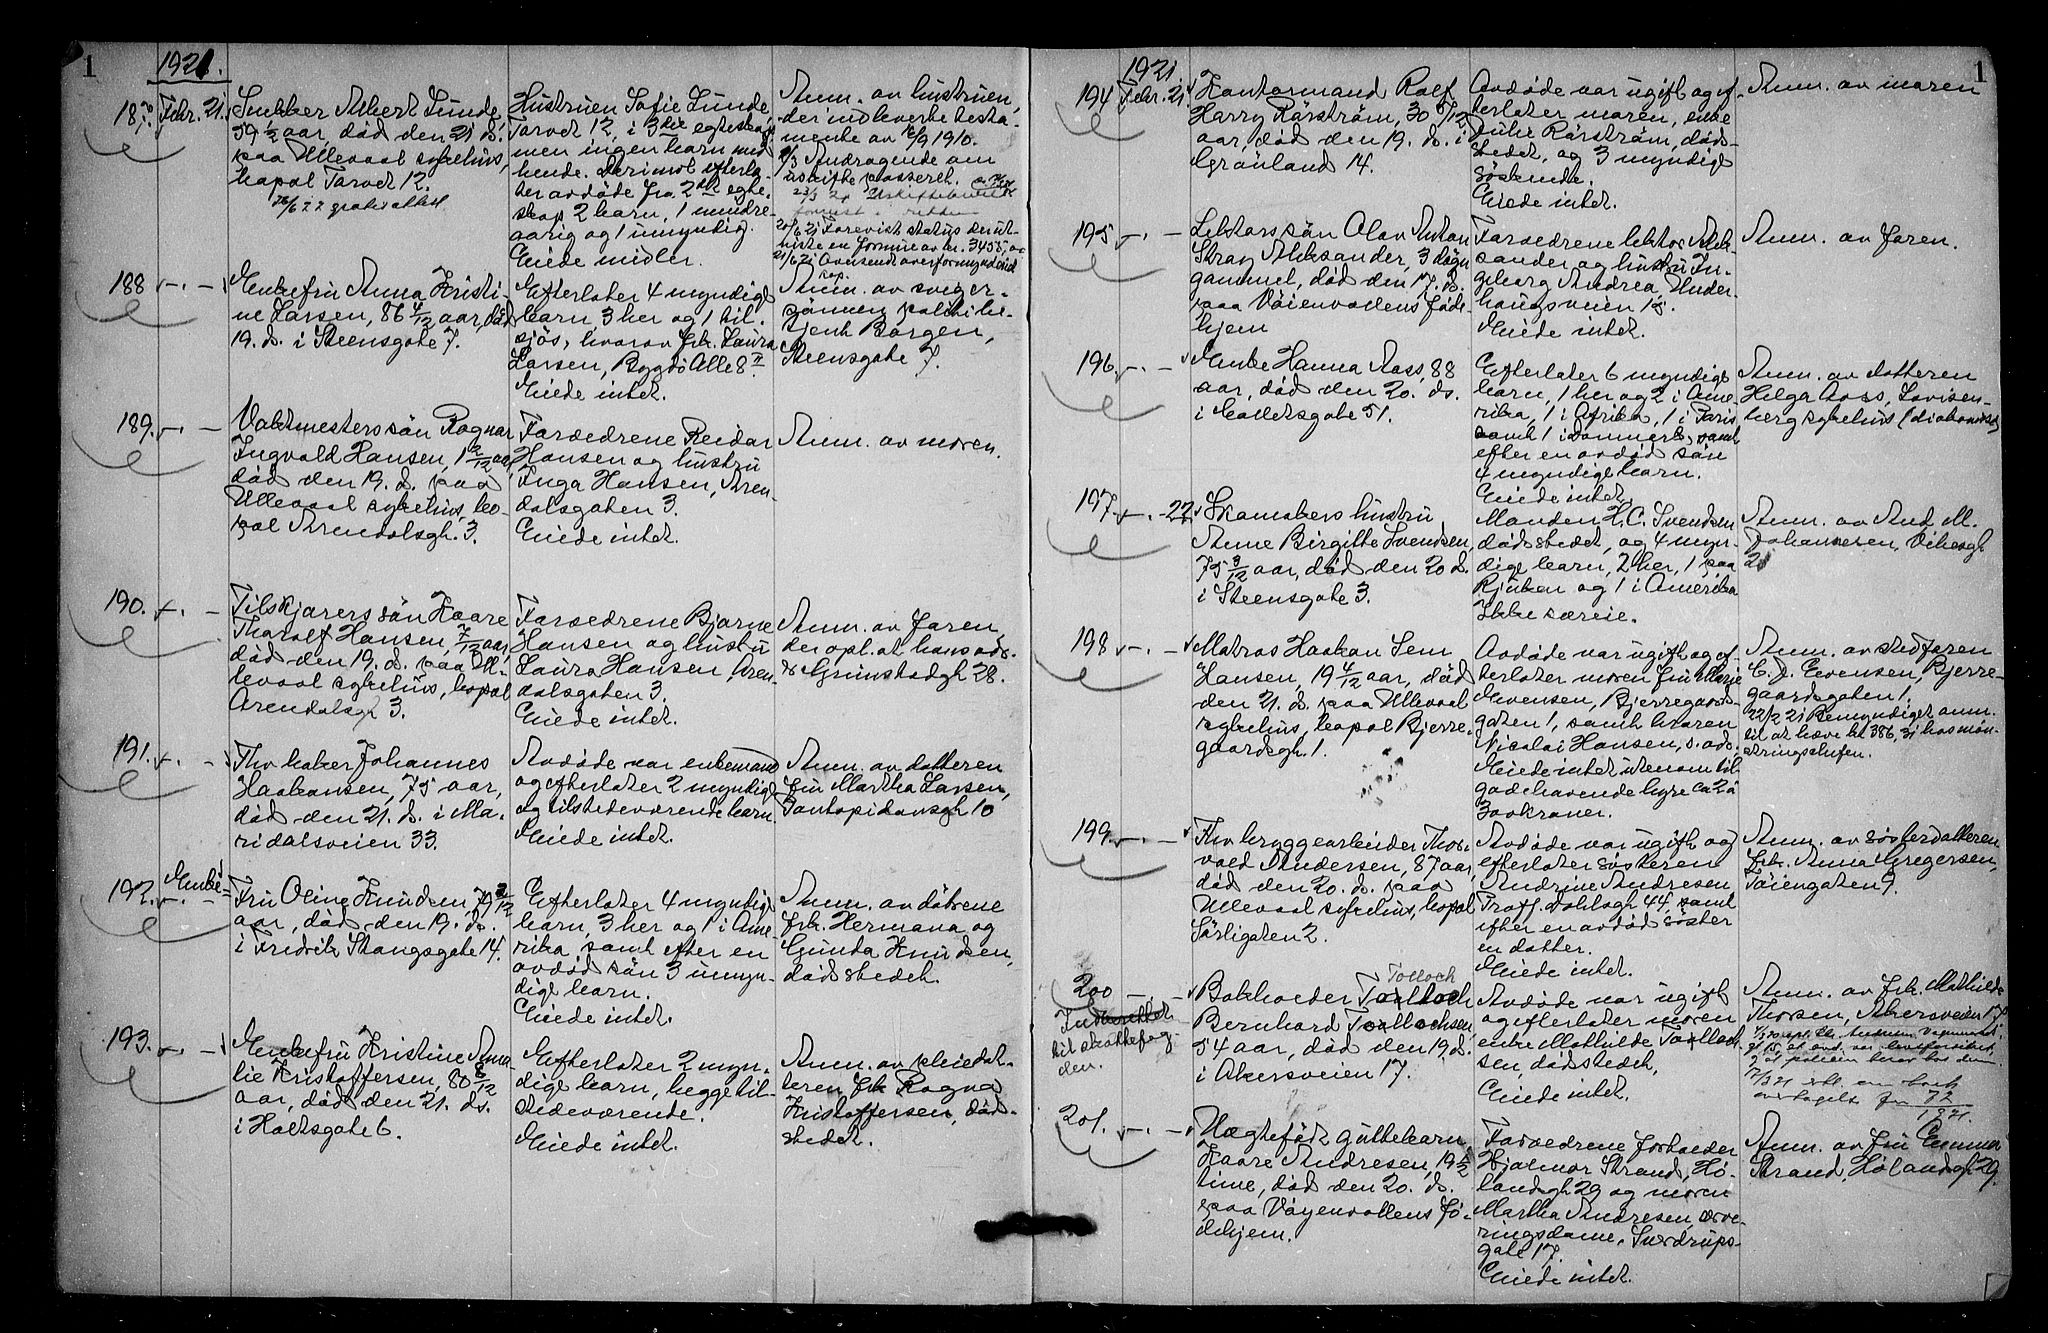 1
1921.
187.
Febr. 21.
Snekker Albert Lunde,
59 1/2 aar, död den 21 d.
paa Ullevaal sykehus,
bopæl Torvet 12.
Hustruen Sofie Lunde,
Torvet 12, i 3die egteskap
men ingen barn med
hende. Derimot efterla-
ter avdöde fra 2det egte-
skap 2 barn, 1 mindre-
aarig og 1 umyndig.
Eiede midler.
Anm. av hustruen,
der indleverte testa-
mente av 1910.
Andragende om
uskifte
20/6 21 Forevist status der ut-
viste en formue av kr. 3455,
188
Enkefru Anna Kristi-
ne Larsen, 86 4/12 aar, död
19. d. i Steensgate 7.
Efterlater 4 myndige
barn, 3 her og 1 til-
sjös, hvorav frk. Laura
Larsen, Bygdö Alle 8 II.
Eiede intet.
Anm. av sviger-
sönnen politibe-
tjent Borgen,
Steensgate 7.
189.
Vaktmesters sön Ragnar
Ingvald Hansen, 1 2/12 aar
död den 19. d. paa
Ullevaal sykehus, bo-
pæl Arendalsgt. 3.
Forældrene Reidar
Hansen og hustru
Inga Hansen, Aren-
dalsgaten 3.
Eiede intet.
Anm. av moren.
190.
Tilskjærers sön Kaare
Thorolf Hansen, 7/12 aar,
död den 19. d. paa Ul-
levaal sykehus, bopæl
Arendalsgt 3.
Forældrene Bjarne
Hansen og hustru
Laura Hansen, Aren-
dalsgaten 3.
Eiede intet.
Anm. av faren,
der opl. at hans adr.
er Grimstadgt 28.
191.
Fhv baker Johannes
Haakonsen, 75 aar,
död den 21. d. i Ma-
ridalsveien 33.
Avdöde var enkemand
og efterlater 2 myndige
og tilstedeværende barn.
Eiede intet.
Anm. av datteren
fru Martha Larsen,
Pontopidansgt 10
192.
Enke-
Fru Oline Knudsen, 79 2/12
aar, död den 19. ds.
i Fredrik Stangsgate 14.
Efterlater 4 myndige
barn, 3 her og 1 i Ame-
rika samt efter en
avdöd sön 3 umyn-
dige barn.
Eiede intet.
Anm. av dötrene
frk. Hermana og
Gunda Knudsen,
dödsstedet.
193.
Enkefru Kristine Ama-
lie Kristoffersen, 80 8/12
aar, död den 21. ds.
i Holtsgate 6.
Efterlater 2 myn-
dige barn, begge til-
stedeværende.
Eiede intet.
Anm. av pleiedat-
teren frk Ragna
Kristoffersen, död-
stedet.
1
1921
194
Febr. 21.
Kontormand Rolf
Harry Rörström, 30 6/12
aar, död den 19. d. i
Grönland 14.
Avdöde var ugift og ef-
terlater moren, enke
Julie Rörström, död-
stedet, og 3 myndige
söskende.
Eiede intet.
Anm. av moren
195
Lektors sön Olav Anton
Stray Aleksander, 3 dögn
gammel, död den 17. d.
paa Vöienvoldens föde-
hjem
Forældrene lektor Alek-
sander og hustru In-
geborg Andrea, Under-
haugsveien 15.
Eiede intet.
Anm. av faren.
196.
Enke Hanna Aass, 88
aar, död den 20. ds.
i Møllersgate 51.
Efterlater 6 myndige
barn, 1 her og 2 i Ame-
rika, 1 i Afrika, 1 i Paris
samt 1 i Danmark, samt
efter en avdöd sön
4 myndige barn.
Eiede intet
Anm. av datteren
Helga Aass, Lovisen-
berg sykehus (diakonisse)
197.
22
Skomakers hustru
Anne Birgitte Svendsen,
75 3/12 aar, död den 20 d.
i Steensgate 3.
Manden H. C. Svendsen
dödsstedet, og 4 myn-
dige barn, 2 her, 1 paa
Rjukan og 1 i Amerika
Ikke særeie.
Anm. av And. M.
Johannesen, Vibesgt
20
198
Matros Haakon Sem
Hansen, 19 4/12 aar, död
den 21. d. paa Ullevaal
sykehus, bopæl Bjerre-
gaardsgt. 1.
Avdöde var ugift og ef-
terlater moren fru Marie
Evensen, Bjerregaards-
gaten 1, samt broren
Nicolai Hansen, s. ads.
Eiede intet utenom til-
godehavende hyre ca 2 à
300 kroner.
Anm. av stedfaren
C. J. Evensen, Bjerre-
gaardsgaten 1.
22/2 21 Bemyndiget anm.
til at hæve kr 386,31 hos mön-
stringschefen.
199.
Fhv bryggearbeider Thor-
vald Andersen, 87 aar,
död den 20. ds. paa
Ullevaal sykehus, bopæl
Sörligaten 2.
Avdöde var ugift og
efterlater sösteren
Andrine Andresen
Proff. Dahlsgt 44, samt
efter en avdöd söster
en datter.
Eiede intet.
Anm. av sösterdatteren,
frk. Anna Gregersen,
Töiengaten 9.
200
Indberettet
til skattefog-
den.
Tolloch
Bokholder
Bernhard Tollochsen
54 aar, död den 19. d.
i Akersveien 17.
Avdöde var ugift
og efterlater moren
enke Mathilde Tolloch-
sen, dödsstedet.
Eiede intet.
Anm. av frk. Mathilde
Thorsen, Akersveien 17
1921.
201.
Uegtefödt guttebarn
Kaare Andresen, 19 1/2
time, död den 20. ds.
paa Vöyenvoldens fö-
dehjem.
Forældrene forhoder
Hjalmar Strand, Hö-
landsgt 29 og moren
Martha Andresen, serve-
ringsdame, Sverdrups-
gate 17.
Eiede intet.
Anm. av fru Emma
Strand, Hölandsgt 29.